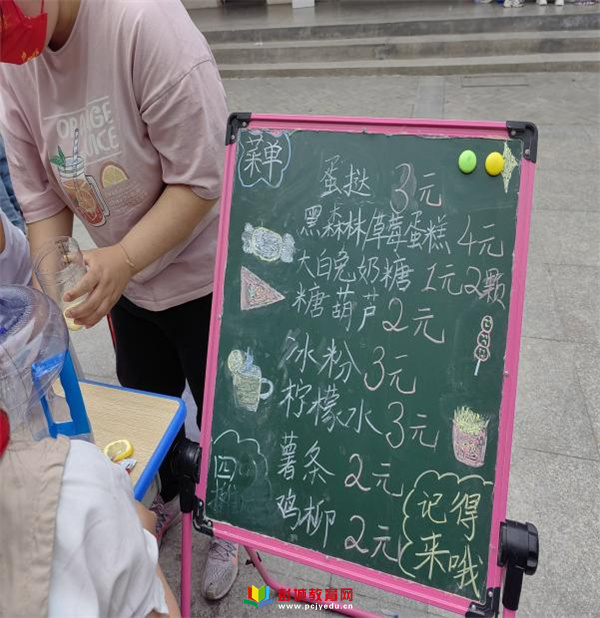 菜单
蛋挞 3元
黑森林草莓蛋糕 4元
大白兔奶糖 1元2颗
糖葫芦 2元
冰粉 3元
柠檬水 3元
薯条 2元
鸡柳 2元
四
记得
来哦
ORANGE
JUICE
彭城教育网
www.pcjyedu.cn